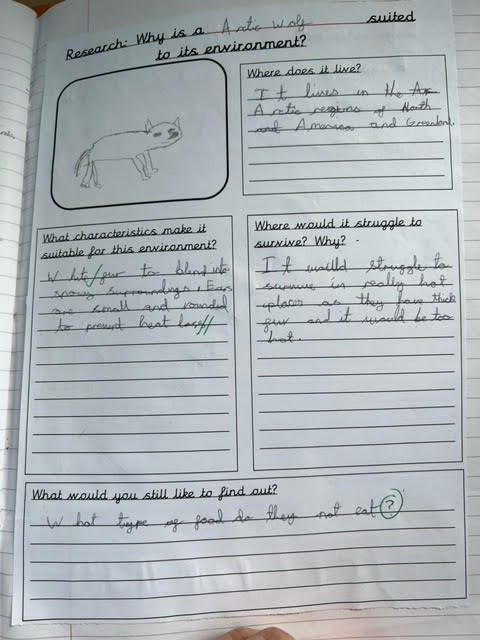 Research: Why is a Arctic Wolf suited
to its environment?
Where does it live?
It lives in the Ar
Arctic regions of North
and America and Greenland.
What characteristics make it
suitable for this environment?
White fur to blend into
snowy surroundings, Ears
are small and rounded
to prevent heat loss
Where would it struggle to
survive? Why?
It would struggle to
survive in really hot
places as they have thick
fur and it would be too
hot.
What would you still like to find out?
What type of food do they not eat?